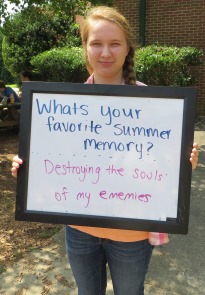 Whats your
favorite Summer
memory?
Destroying the souls
of my enemies